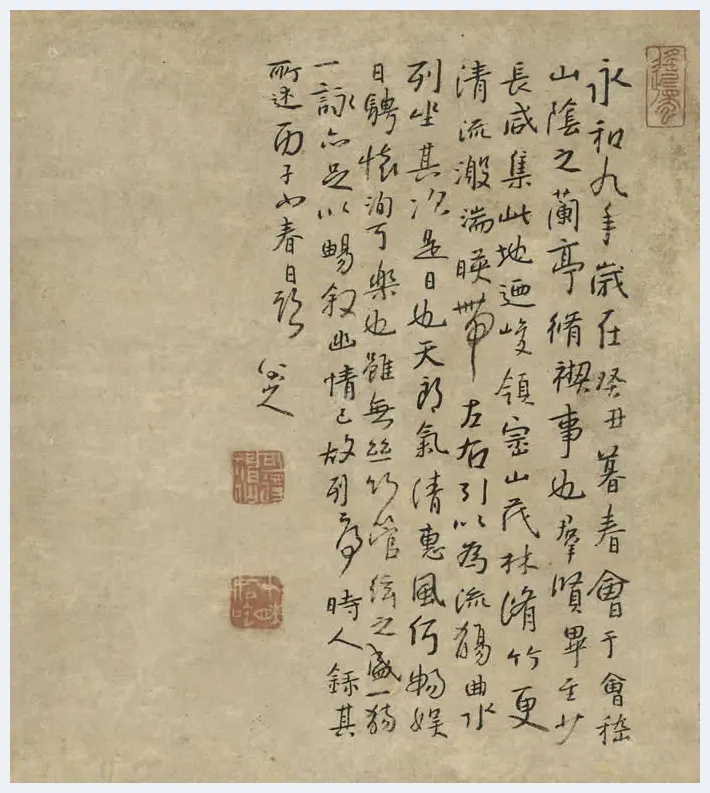 永和九年歲在癸丑暮春會于會嵇
山陰之蘭亭脩禊事也羣賢畢至少
長咸集此地迺峻領崇山茂林脩竹更
清流激湍暎帶左右引以為流觴曲水
列坐其次是日也天朗氣清惠風何暢娱
日騁懷洵可樂也雖無絲竹管絃之盛一觴
一詠亦足以暢叙幽情已故列序時人錄其
所述丙子小春日
八大山人
可得神仙